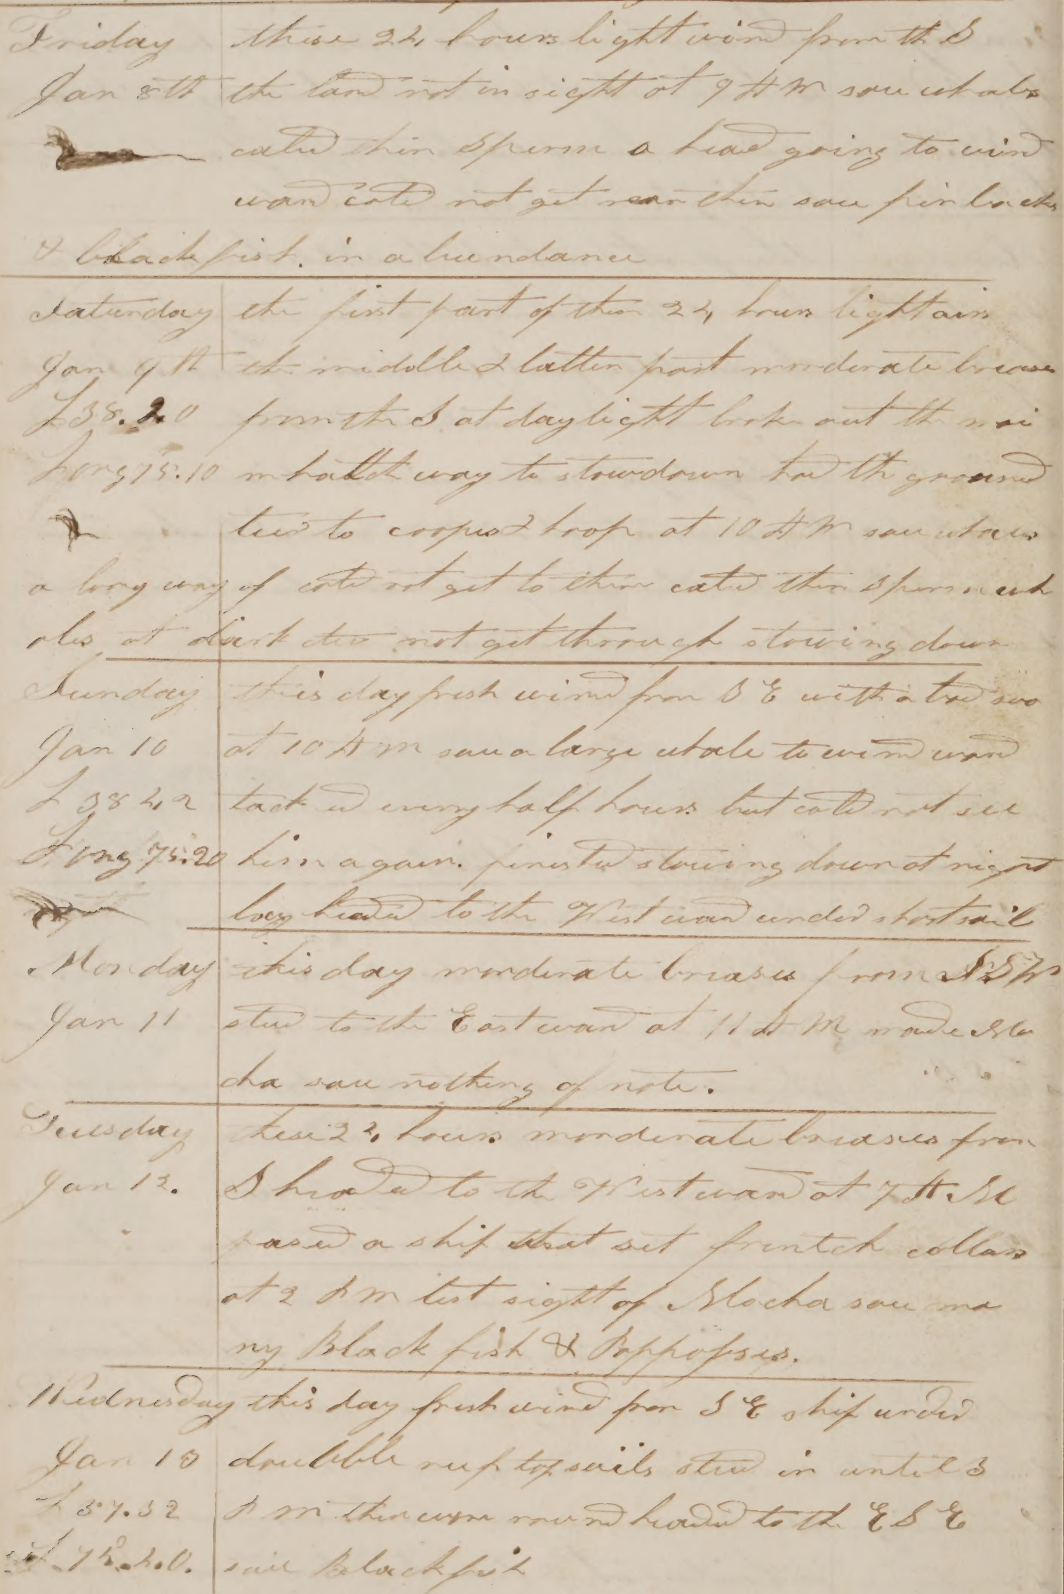 Friday these 24 hours light wind from th S
Jan 8th the land not in sight at 9 A M saw whales
caled thin Sperm a head going to wind
ward cold not get near thin saw finbacks
& black fish. in abundance
Saturday the first part of thes 24 hours light airs
Jan 9th the middle & latter part morderate breases
L 38.20 from the S at daylight broke out the mai
Long 75.10 n hatch way to stowdown had th ground
tier to cooper & hoop at 10 A M saw whales
a long way of cold not get to them caled thin sperm wh
ales at dark did not get through stowing down
Sunday this day fresh wind from S E with a bad sea
Jan 10 at 10 A M saw a large whale to wind ward
L 38 42 tacked every half hours but cold not see
Long 75.20 him again. finished stowing down at night
lay headed to the West ward under short sail
Monday this day morderate breases from S S W
Jan 11 stud to the East ward at 11 A M made Mo
cha saw nothing of note.
Tuesday these 24 hours morderate breases from
Jan 12. S headed to the West ward at 7 A M
pased a ship that set frentch collars
at 2 P M lost sight of Mocha saw ma
ny Black fish & Poppopses.
Wednesday this day fresh wind from S E ship under
Jan 13 doubble reef topsails stud in until 3
L 37.32 P M then wore round headed to the E S E
saw Black fish